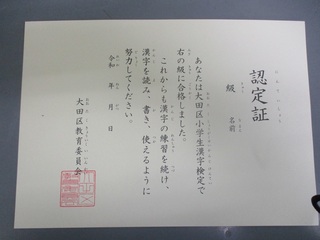 認定証
級
名前
あなたは大田区小学生漢字検定で
右の級に合格しました。
これからも漢字の練習を続け、
漢字を読み、書き、使えるように
努力してください。
令和　年　月　日
大田区教育委員会